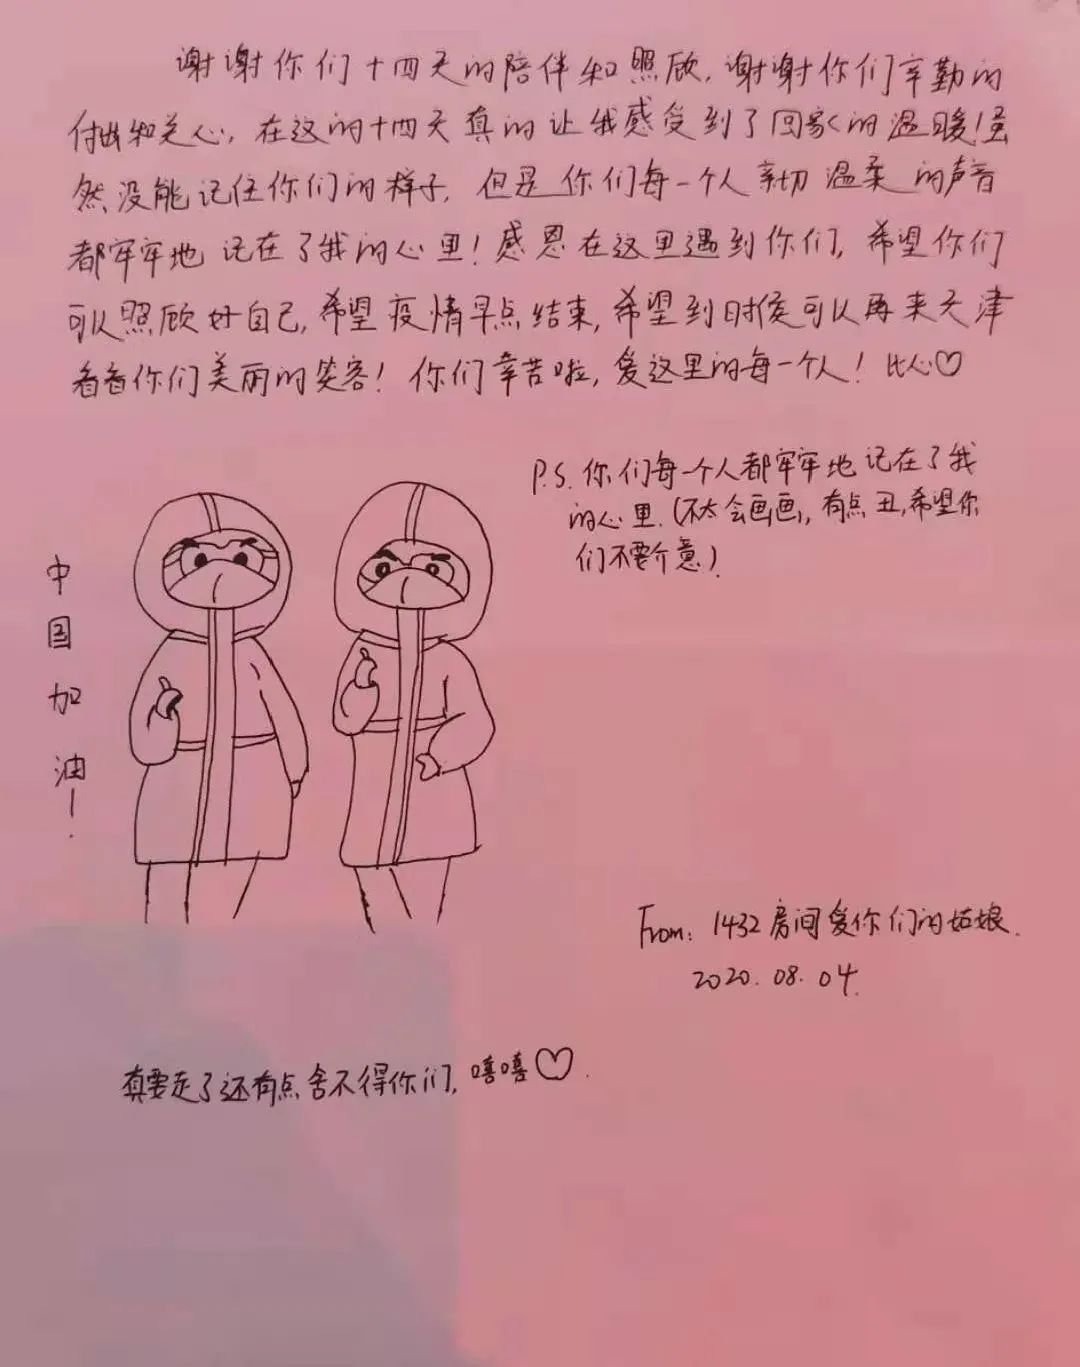 谢谢你们十四天的陪伴和照顾，谢谢你们辛勤的
付出和关心，在这的十四天真的让我感受到了回家的温暖！虽
然没能记住你们的样子，但是你们每一个人亲切温柔的声音
都牢牢地记在了我的心里！感恩在这里遇到你们，希望你们
可以照顾好自己，希望疫情早点结束，希望到时候可以再来天津
看看你们美丽的笑容！你们辛苦啦，爱这里的每一个人！比心♡
P.S. 你们每一个人都牢牢地记在了我
的心里.（不太会画画，有点丑，希望你
们不要介意）
中国加油！
From: 1432房间爱你们的姑娘.
2020.08.04.
真要走了还有点舍不得你们，嘻嘻♡.